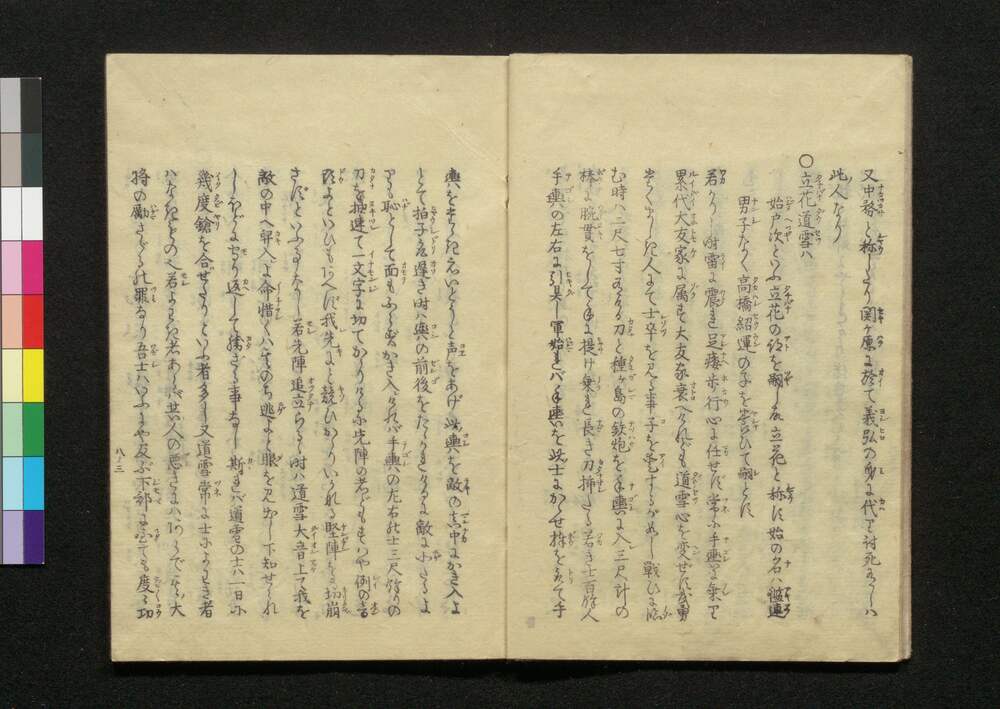 又中務と称しけり関ヶ原に於て義弘の身に代て討死ありしハ
此人なり
〇立花道雪ハ
始戸次といふ立花の跡を嗣し故立花と称に始の名ハ鑑連
男子なく高橋紹運の子を養ひて嗣とに
若かりし時雷に震れ足痿歩行心に任せに常に手輿に乗て
累代大友家に属も大友家衰へけれども道雪心を変せに武勇
たくましき人よて士卒を見る事子を愛するがめし戦ひに臨
む時ハ二尺七寸ある刀と種ヶ島の鉄炮を手輿に入三尺計の
棒に腕貫をして手に提け乗れ長き刀挿たる若き士百餘人
手輿の左右に引具し軍始れバ手輿を此士にかゝせ棒をとて手
輿をたゝきえいとうと声をあげ此輿を敵の真中にかき入よ
とて拍子を遅き時ハ輿の前後をたゝかれける敵に小さるよ
り恥として面もふらずかき入けれバ手輿の左右の士三尺餘りの
刀を抜連て一文字に切てかゝりける先陣の者どももハや例の音
頭よといひもあへに我先にと競ひかゝりいかなる堅陣をも切崩
さにといふ事なし若先陣追立らるゝ時ハ道雪大音上て我を
敵の中へ舁入よ命惜くハ其のち逃よと眼を見出し下知せられ
しほどによせり返して勝ざる事なし斯れバ道雪の士ハ一日に
幾度鎗を合せたりといふ者多し又道雪常に士によわき者
ハなきものへ若よわき者あらバ其人の悪きにハあらで大
将の励さゞるの罪なり吾士ハいふに及ぶ下部に至ても度々功
八ノ三